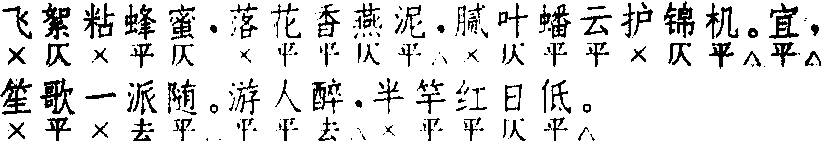 飞絮粘蜂蜜．落花香燕泥．腻叶蟠云护锦机。宜，
×仄×平仄　×平平仄平△×仄平平×仄平△平△
笙歌一派随。游人醉．半竿红日低。
×平×去平　平平去△×平平仄平△